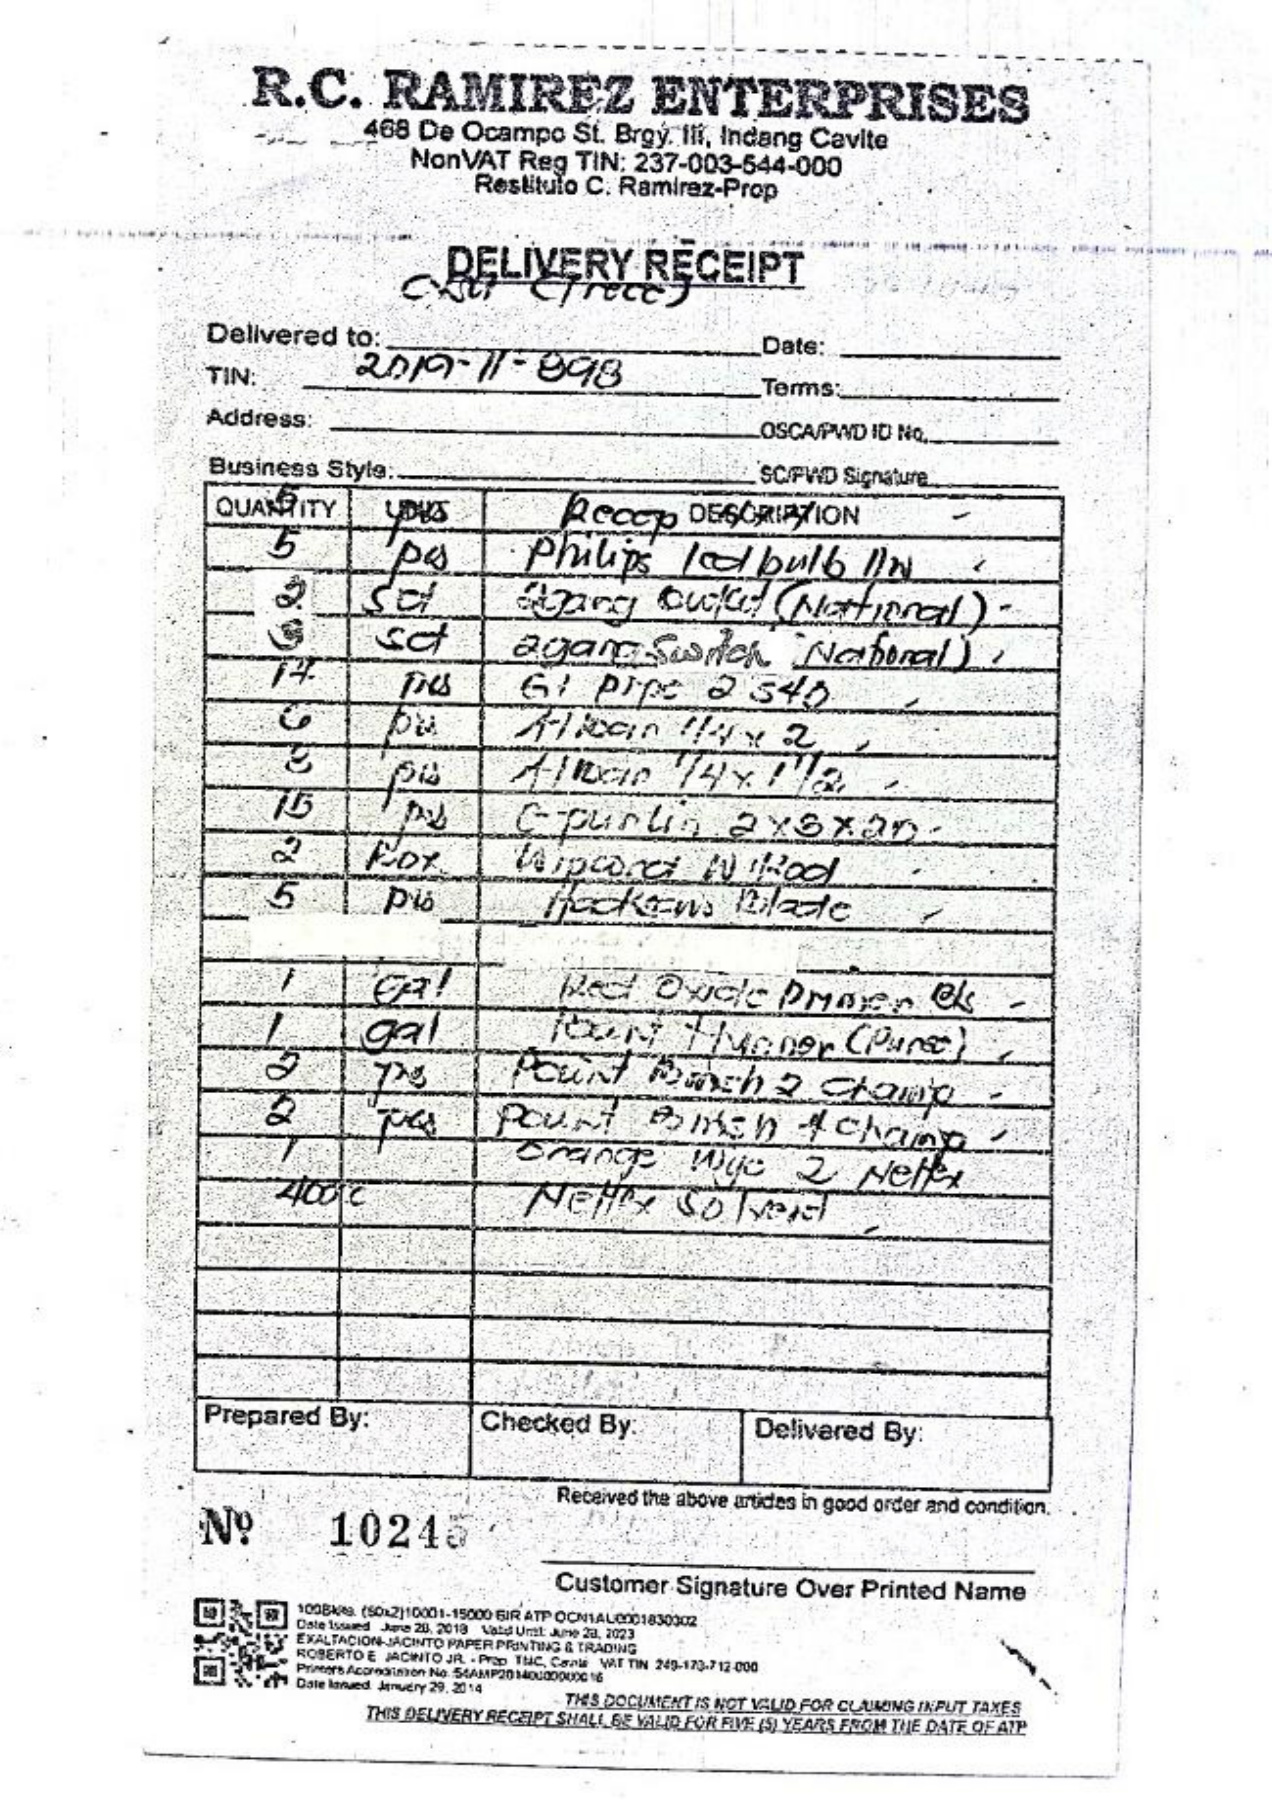 R.C. RAMIREZ ENTERPRISES
468 De Ocampo St. Brgy. III, Indang Cavite
NonVAT Reg TIN: 237-003-544-000
Restituto C. Ramirez-Prop
DELIVERY RECEIPT
Delivered to: Date:
2019-11-898
TIN: Terms:
Address: OSCA/PWD ID No.
Business Style: SC/PWD Signature
QUANTITY DESCRIPTION
5 pcs
5 pcs Philips led bulb 11W
2 set 2gang (National)
set 2gang Switch (National)
17 pcs GI pipe 2 S40
6 pcs 1/4 x 2
pcs 1/4 x 1 1/2
15 pcs C-purlin 2x3x20
2 Box
5 pcs Blade
1 Gal Red Oxide Primer
1 gal Paint Thinner (Purec)
2 pcs Paint Brush 2 Champ
2 pcs Paint Brush 4 Champ
1 Orange Wye 2 Neltex
400cc Neltex Solvent
Prepared By: Checked By: Delivered By:
Received the above articles in good order and condition.
Nº 10245
Customer Signature Over Printed Name
100Bklts. (50x2)10001-15000 BIR ATP OCN1AU0001830302
Date Issued June 28, 2018 Valid Until: June 28, 2023
EXALTACION-JACINTO PAPER PRINTING & TRADING
ROBERTO E. JACINTO JR. - Prop. TMC, Cavite VAT TIN 249-173-712-000
Printers Accreditation No. 54AMP20140000000016
Date Issued January 29, 2014
THIS DOCUMENT IS NOT VALID FOR CLAIMING INPUT TAXES
THIS DELIVERY RECEIPT SHALL BE VALID FOR FIVE (5) YEARS FROM THE DATE OF ATP